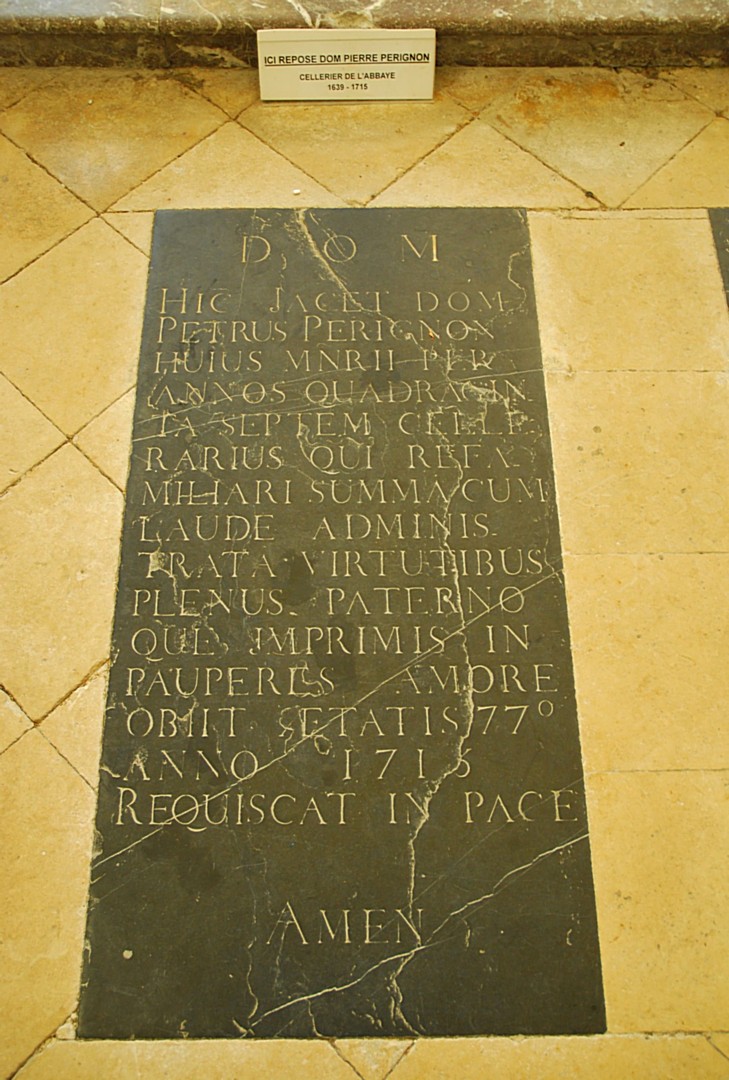 ICI REPOSE DOM PIERRE PERIGNON
CELLERIER DE L'ABBAYE
1639 - 1715
D O M
HIC JACET DOM
PETRUS PERIGNON
HUIUS MNRII PER
ANNOS QUADRAGIN
TA SEPTEM CELLE
RARIUS QUI REFA
MILIARI SUMMA CUM
LAUDE ADMINIS
TRATA VIRTUTIBUS
PLENUS PATERNO
QUE IMPRIMIS IN
PAUPERES AMORE
OBIIT ÆTATIS 77º
ANNO 1715
REQUISCAT IN PACE
AMEN